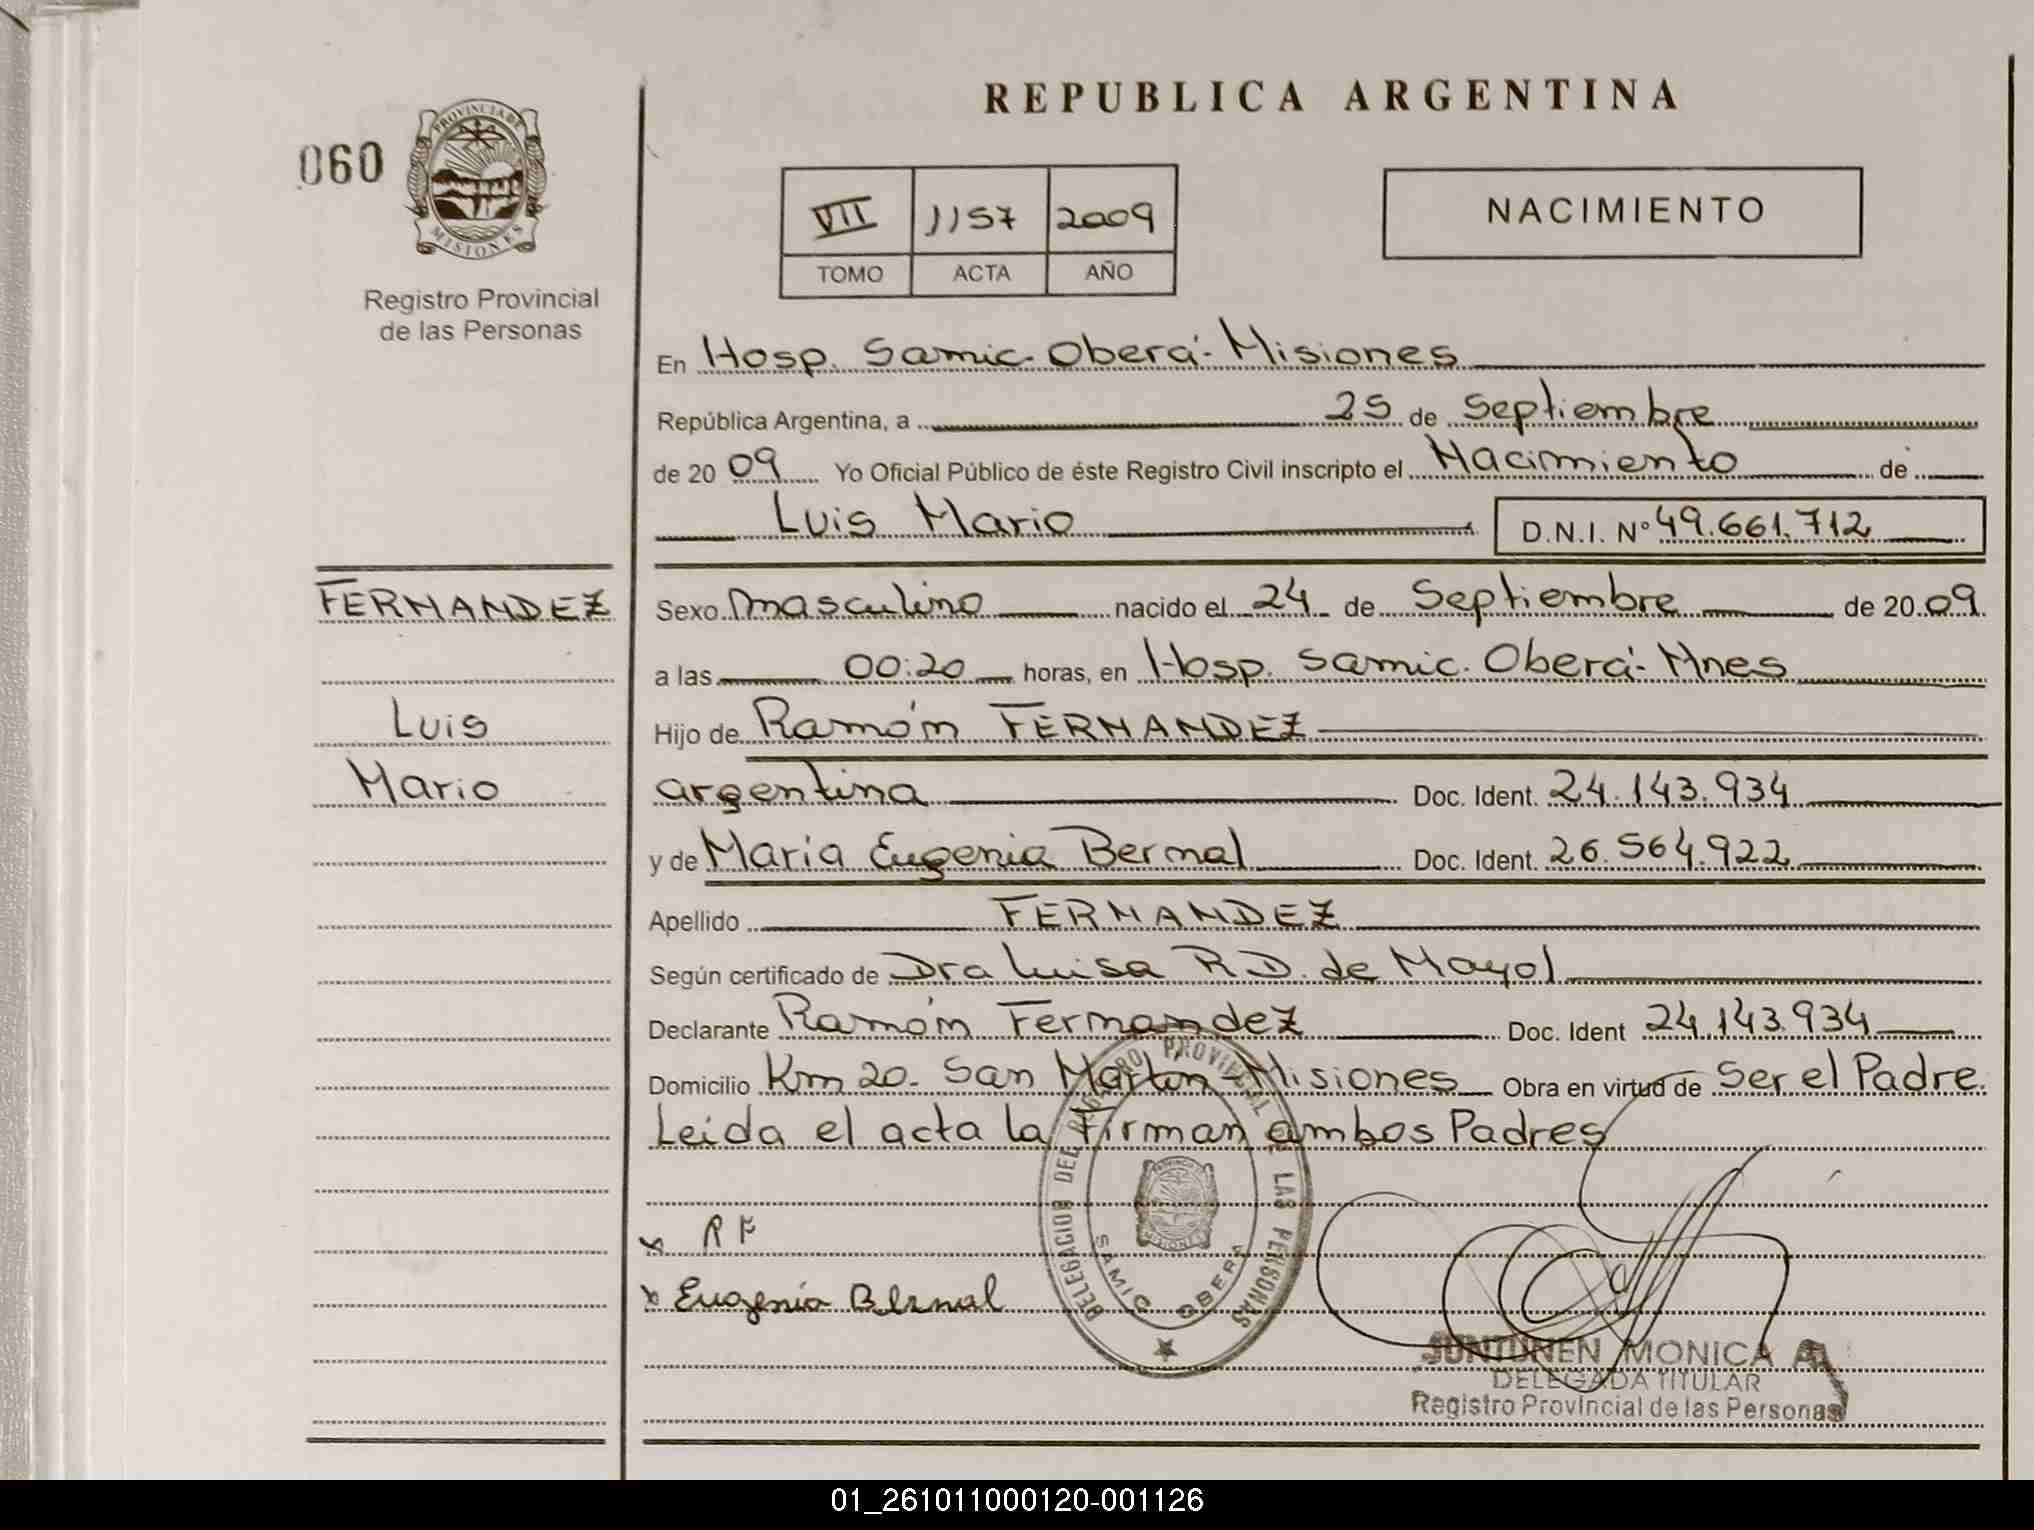 REPUBLICA ARGENTINA
060
PROVINCIA DE
MISIONES
Registro Provincial
de las Personas
VII 1157 2009
TOMO ACTA AÑO
NACIMIENTO
En Hosp. Samic. Oberá - Misiones
República Argentina, a 25 de septiembre
de 2009 Yo Oficial Público de éste Registro Civil inscripto el Nacimiento de
Luis Mario D.N.I. Nº 49.661.712
FERNANDEZ
Luis
Mario
Sexo masculino nacido el 24 de Septiembre de 2009
a las 00:20 horas, en Hosp. Samic. Oberá - Mnes
Hijo de Ramón FERNANDEZ
argentina Doc. Ident. 24.143.934
y de Maria Eugenia Bernal Doc. Ident. 26.564.922
Apellido FERNANDEZ
Según certificado de Dra Luisa R.D. de Mayol
Declarante Ramón Fernandez Doc. Ident 24.143.934
Domicilio Km 20. San Martin - Misiones Obra en virtud de Ser el Padre.
Leida el acta la Firman ambos Padres
x RF
x Eugenia Bernal
DELEGACION DEL REGISTRO PROVINCIAL DE LAS PERSONAS
SAMIC OBERA
MISIONES
JUNTUNEN MONICA A.
DELEGADA TITULAR
Registro Provincial de las Personas
01_261011000120-001126